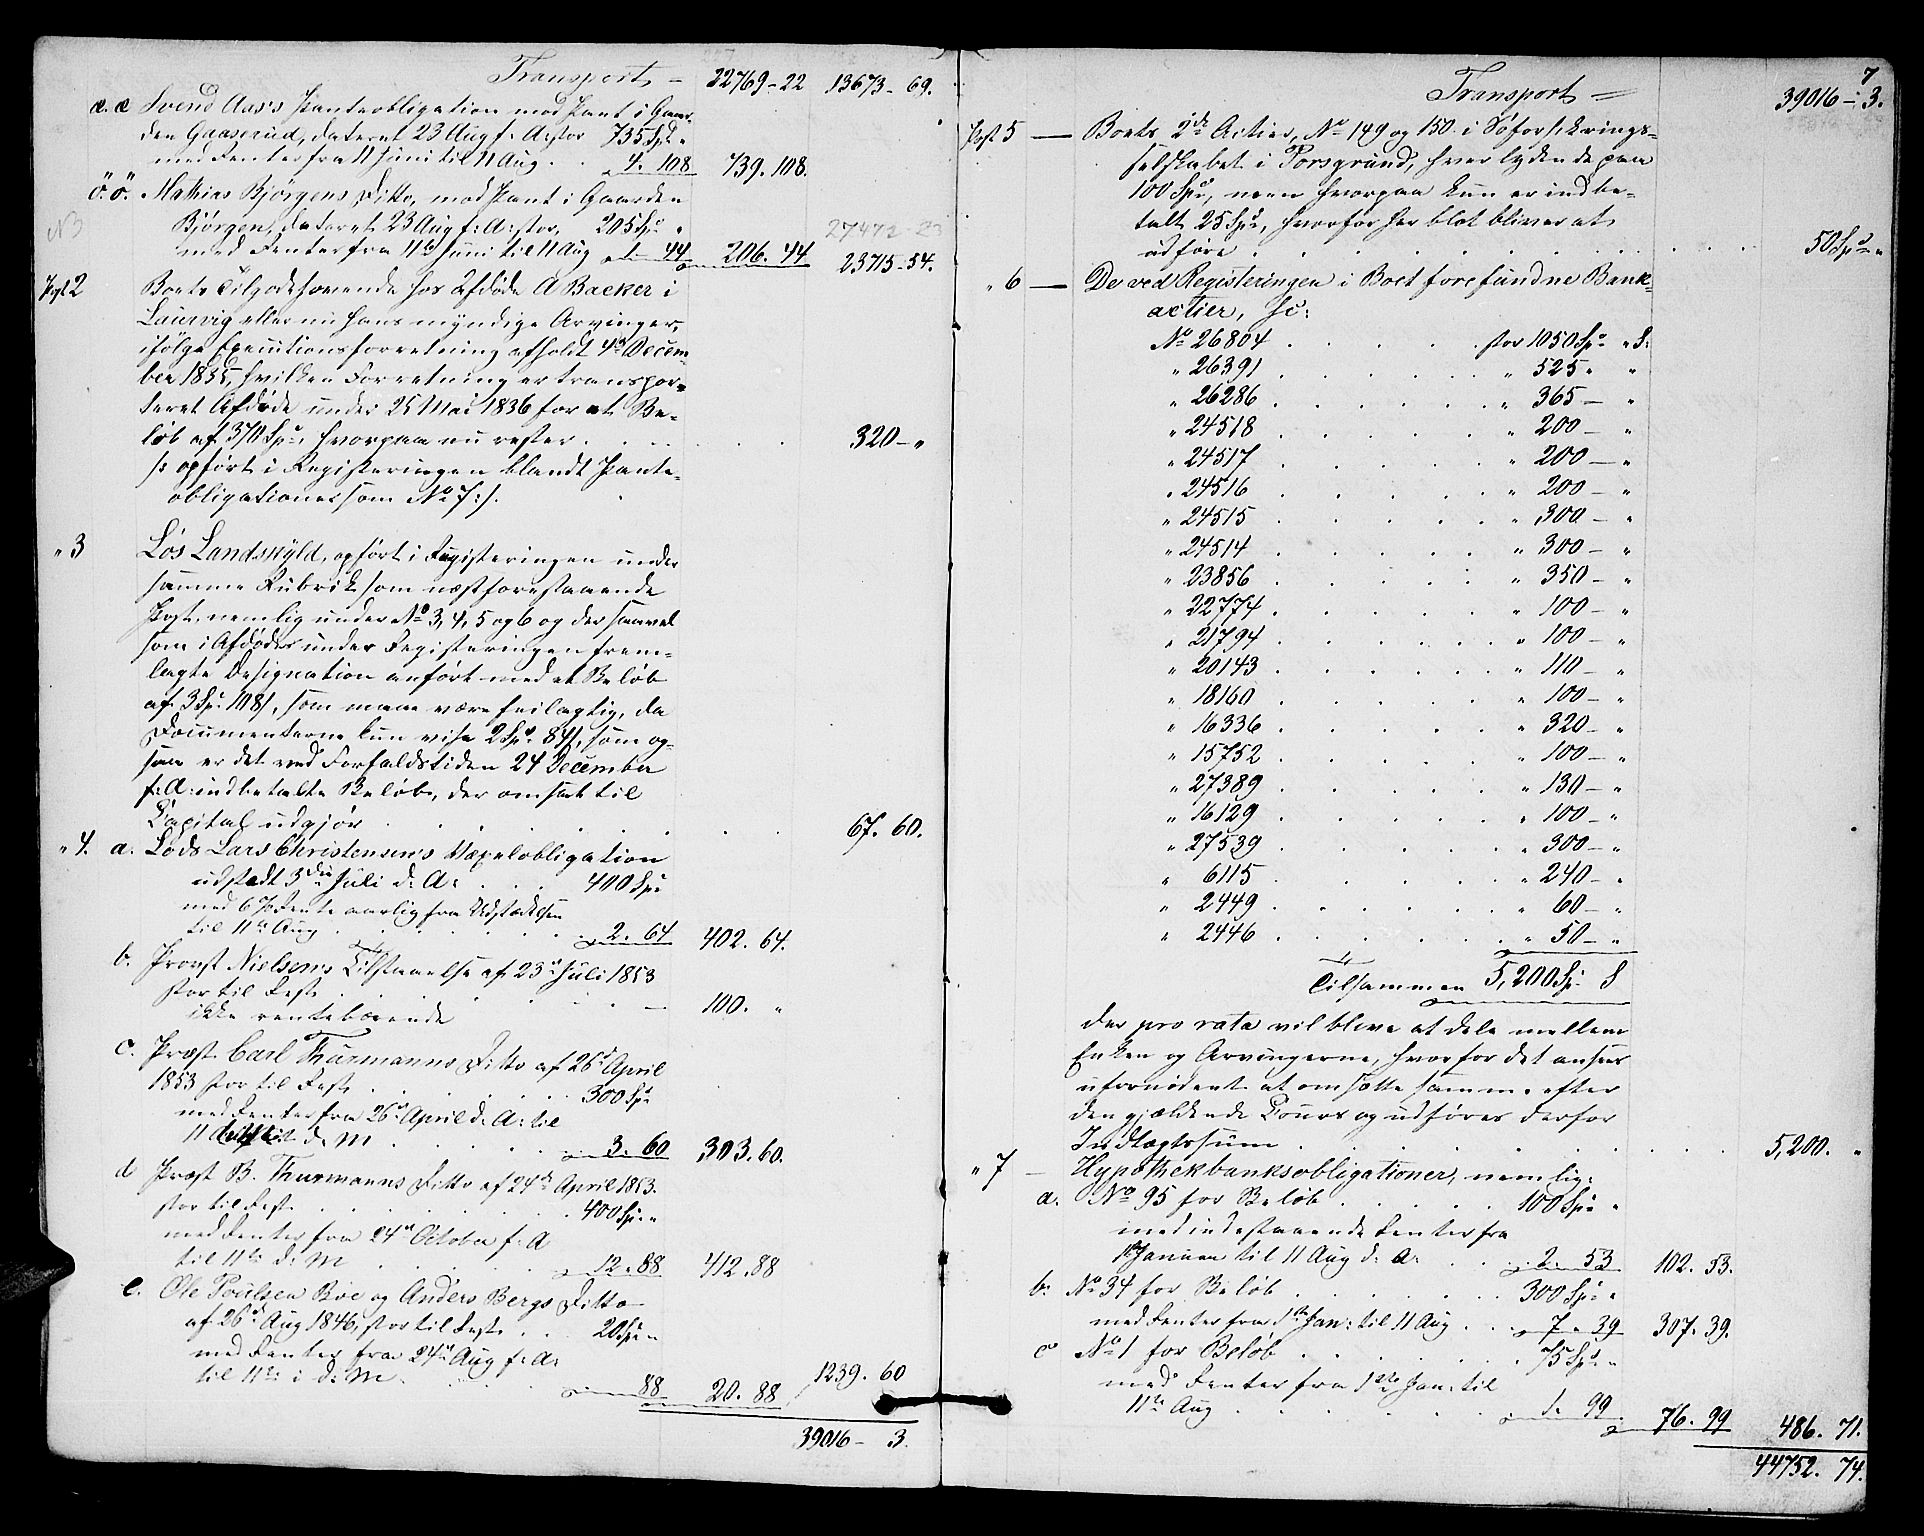 Transport – 22769-22 13673-69.
æ.æ Svend Aas's Panteobligation med Pant i Gaar-
den Gaaserud, dateret 23 Aug f: A: stor 735 Spd „
med Renter fra 11 Juni til 11 Aug . . 4. 108 739. 108.
ö.ö. Mathias Bjørgens Ditto, med Pant i Gaarden
N3 Bjørgen, dateret 23 Aug f: A: stor, 205 Spd „ 27472-23
med Renter fra 11te Juni til 11 Aug 1- 44 206. 44 23715-54.
Post 2 Boets Tilgodehavende hos Afdøde A Backer i
Laurvig eller nu hans myndige Arvinger,
ifølge Executionsforretning afholdt 4de Decem-
ber 1835, hvilken Forretning er transpor-
teret Afdøde under 25 Mai 1836 for et Be-
løb af 370 Spd, hvorpaa nu rester . . . . . 320-„
/: opført i Registeringen blandt Pante-
obligationer som No 7 :/.
„ 3 Løs Landskyld, opført i Registeringen under
samme Rubrik som næstforestaaende
Post, nemlig under No 3, 4, 5 og 6 og der saavel
som i Afdødes under Registeringen frem-
lagte Designation anført med et Beløb
af 3 Spd 108 s, som maae være feilagtig, da
Documenterne kun vise 2 Spd 84 s, som og-
saa er det ved Forfaldstiden 24 December
f: A: indbetalte Beløb, der omsat til
Capital udgjør . . . . . . . . 67. 60.
„ 4. a. Lods Lars Christensens Væxelobligation
udstædt 3die Juli d: A: . . . 400 Spd
med 6 p Rente aarlig fra Udstædelsen
til 11te Aug . . . . . . 2. 64 402. 64.
b. Provst Nielsens Tilstaaelse af 23de Juli 1853
stor til Rest . . . . . .
ikke rentebærende – 100. „
c. Præst Carl Thurmanns Ditto af 26de April
1853 stor til Rest . . . . . 300 Spd
med Renter fra 26de April d: A: til
11 d: M . . . . . 3. 60 303. 60.
d Præst B. Thurmanns Ditto af 24de April 1853.
stor til Rest . . . . . . 400 Spd „
med Renter fra 24de October f: A
til 11te d: M . . . . . 12. 88 412. 88
e. Ole Poulsen Boe og Anders Bergs Ditto
af 26de Aug 1846, stor til Rest . . 20 Spd „
med Renter fra 24de Aug f: A:
til 11te i d: M . . . . . 88 20. 88 1239. 60
39016- 3.
7
Transport = 39016-3.
Post 5 — Boets 2de Actier, No 149 og 150 i Søforsikrings-
selskabet i Porsgrund, hver lydende paa
100 Spd, men hvorpaa kun er indbe-
talt 25 Spd, hvorfor her blot bliver at
udføre . . . . . . . . . . 50 Spd „
„ 6 — De ved Registeringen i Boet forefundne Bank-
actier, sc:
No 26804 . . . . . stor 1050 Spd „ S:
„ 26391 . . . . . „ 525 „ „
„ 26286 . . . . . „ 365 – „
„ 24518 . . . . . „ 200 – „
„ 24517 . . . . . „ 200 – „
„ 24516 . . . . . „ 200 – „
„ 24515 . . . . . „ 300 – „
„ 24514 . . . . . „ 300 – „
„ 23856 . . . . . „ 350 – „
„ 22774 . . . . . „ 100 – „
„ 21794 . . . . . „ 100 – „
„ 20143 . . . . . „ 110 – „
„ 18160 . . . . . „ 100 – „
„ 16336 . . . . . „ 320 – „
„ 15752 . . . . . „ 100 – „
„ 27389 . . . . . „ 130 – „
„ 16129 . . . . . „ 100 – „
„ 27539 . . . . . „ 300 – „
„ 6115 . . . . . „ 240 – „
„ 2449 . . . . . „ 60 – „
„ 2446 . . . . . „ 50 – „
Tilsammen 5,200 Spd S
der pro rata vil blive at dele mellem
Enken og Arvingerne, hvorfor det ansees
ufornødent at omsætte samme efter
den gjældende Cours og udføres derfor
Indlægssum . . . . . . . . 5,200. „
„ 7 — Hypothekbanksobligationer, nemlig:
a. No 95 for Beløb . . . . . 100 Spd „
med indestaaende Renter fra
1te Januar til 11 Aug d: A: . . 2. 53 102. 53.
b. No 34 for Beløb . . . . . 300 Spd „
med Renter fra 1te Jan: til 11 Aug . . 7. 39 307. 39.
c No 1 for Beløb . . . . . 75 Spd „
med Renter fra 1ste Jan: til
11te Aug . . . . . . 1. 99 76. 99 486. 71.
44752. 74.